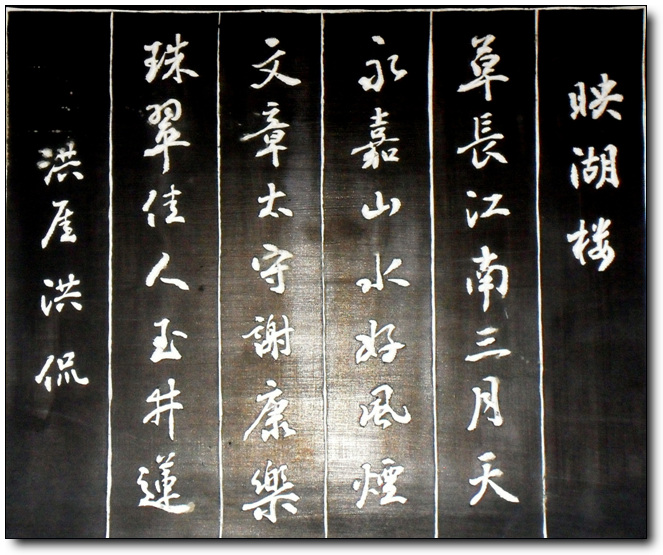 映湖楼
草長江南三月天
永嘉山水好風煙
文章太守謝康樂
珠翠佳人玉井蓮
洪厓洪侃